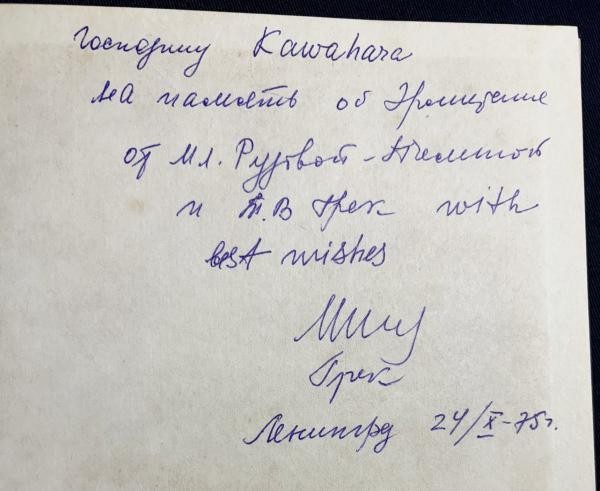 Господину Kawahara
на память об Эрмитаже
от М.л. Рудовой - Пчелиной
и Т.В Грек with
best wishes
Грек
Ленинград 24/X-75г.